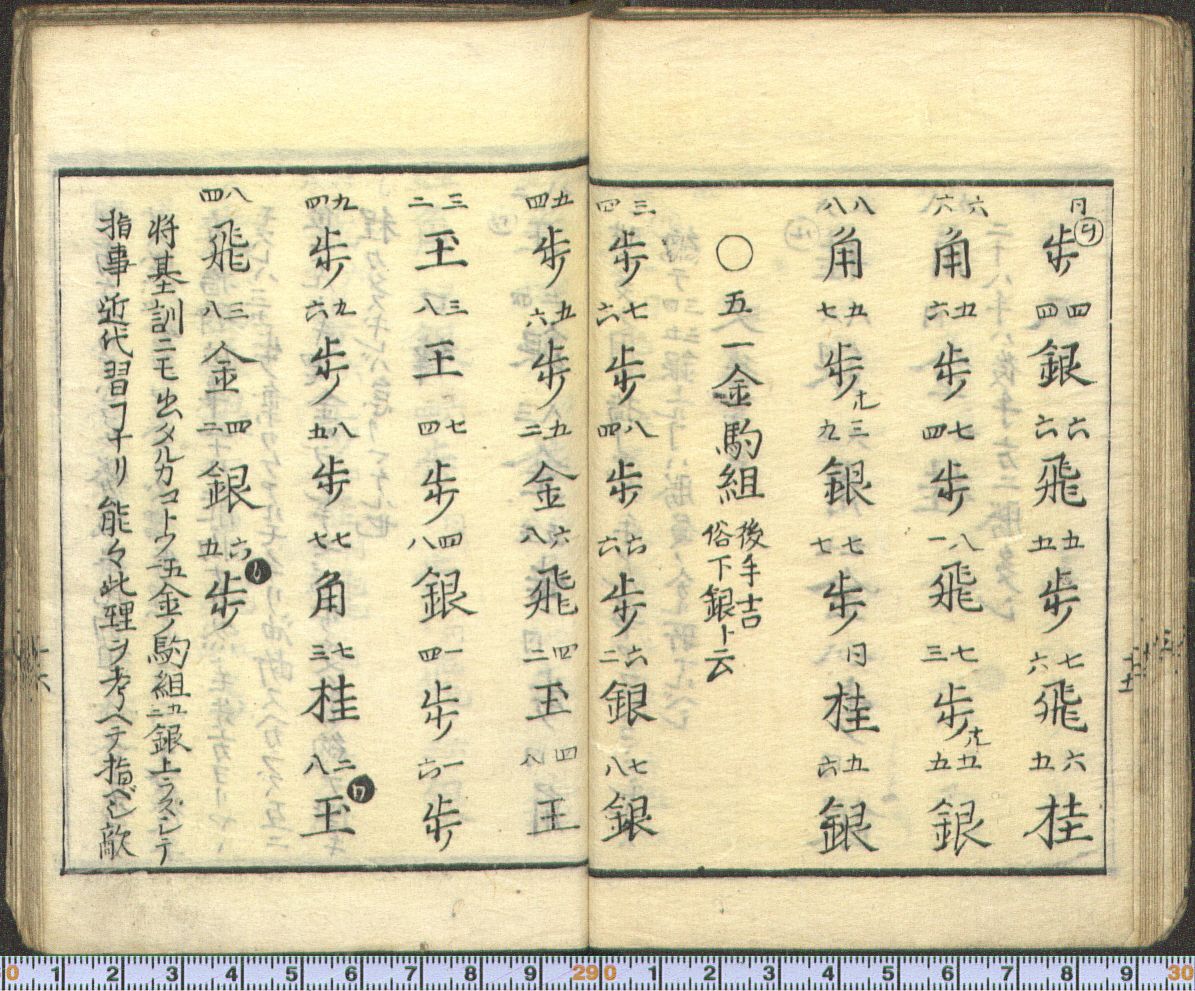 同歩四四銀六六飛五五歩七六飛六五桂
六六角五六歩七四歩八一飛七三歩ナル五五銀
八八角五七歩ナル三九銀七七歩同桂五六銀
○五一金駒組
後手吉
俗下銀ト云
三四歩七六歩八四歩六六歩六二銀七八銀
五四歩五六歩五二金六八飛四二王四八王
三二王三八王七四歩四八銀一四歩一六歩
九四歩九六歩八五歩七七角七三桂二八王
八四飛三八金四二銀六五歩
将基訓ニモ出タルカコトク五金ノ駒組ニ五銀上ラズシテ
指事近代習ヿナリ能々此理ヲ考ヘテ指ベシ敵